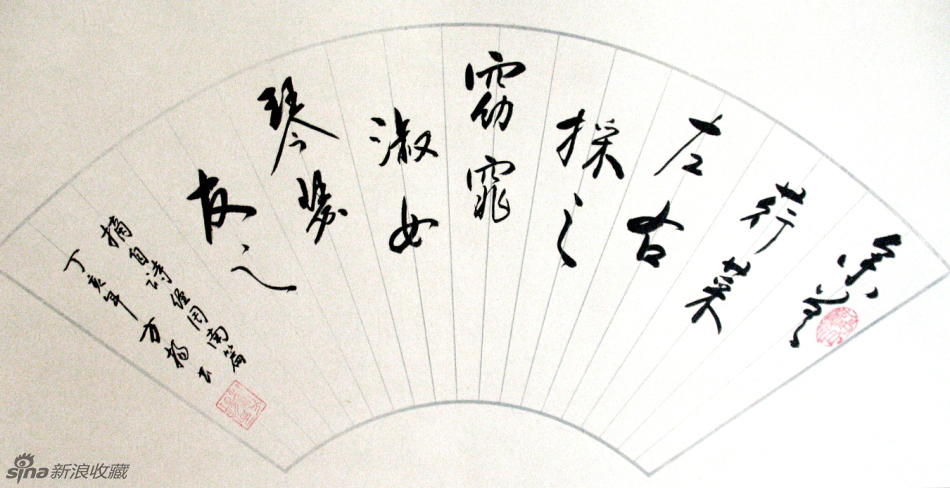 参差
荇菜
左右
採之
窈窕
淑女
琴瑟
友之
摘自诗经周南篇
丁亥年方书
sina新浪收藏